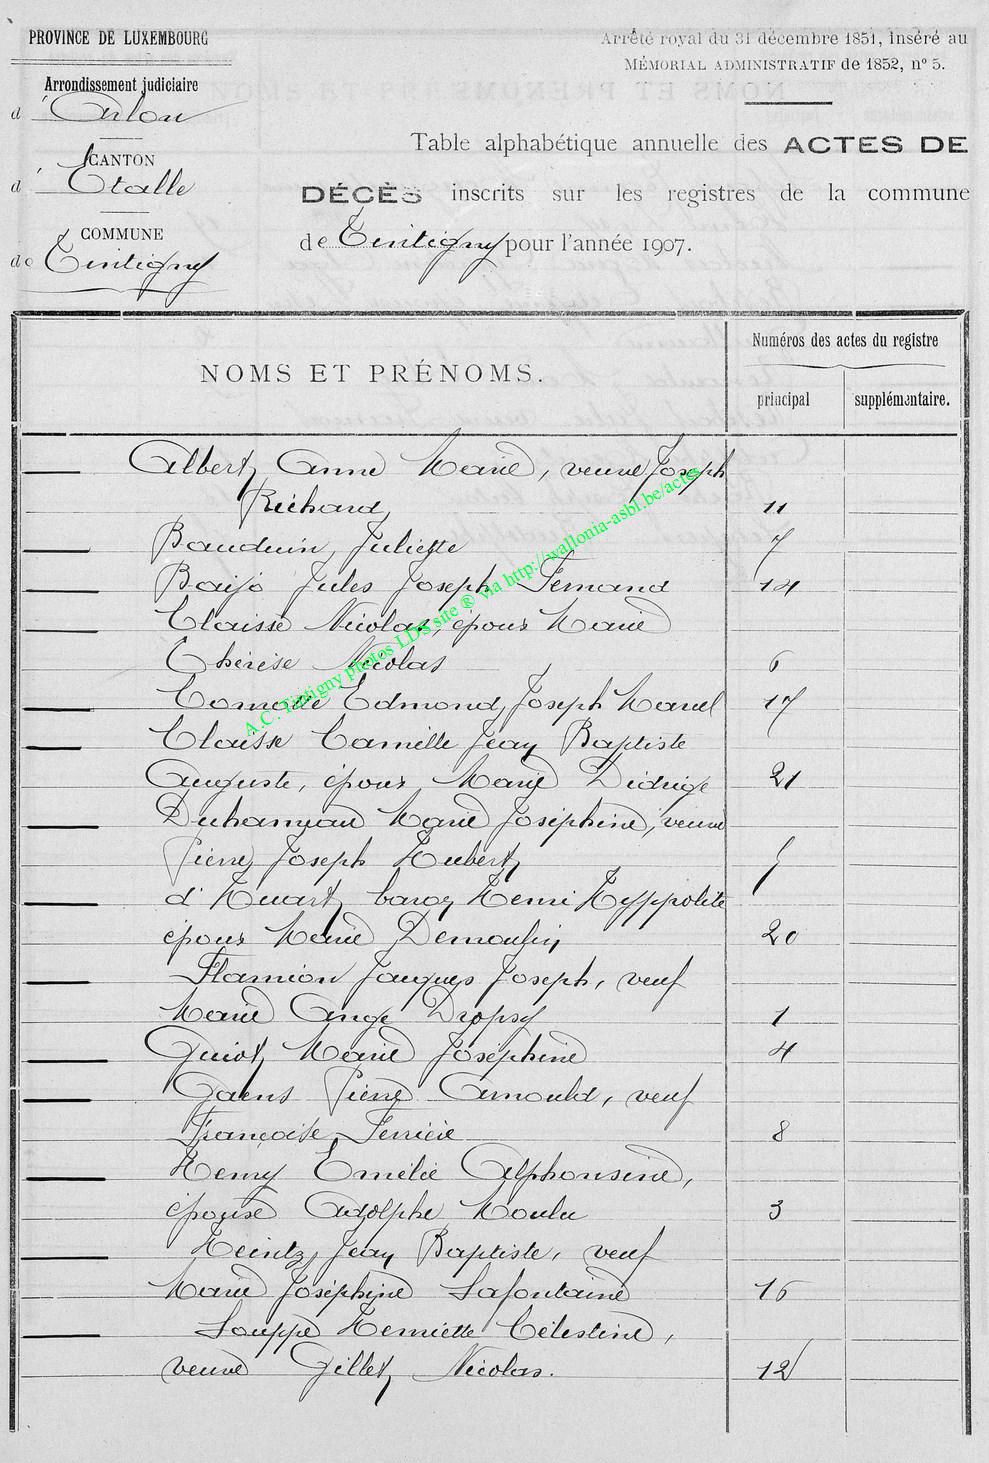 PROVINCE DE LUXEMBOURG
Arrondissement judiciaire
d'Arlon
CANTON
d'Etalle
COMMUNE
de Tintigny
Arrêté royal du 31 décembre 1851, inséré au
MÉMORIAL ADMINISTRATIF de 1852, n° 5.
Table alphabétique annuelle des ACTES DE
DÉCÈS inscrits sur les registres de la commune
de Tintigny pour l'année 1907.
NOMS ET PRÉNOMS.
Numéros des actes du registre
principal
supplémentaire.
Albert Anne Marie, veuve Joseph
Richard 11
Bauduin Juliette 7
Jules Joseph Fernand 14
Claisse Nicolas, époux Marie
Thérèse Nicolas 6
Edmond Joseph Marcel 17
Claisse Camille Jean Baptiste
Auguste, époux Marie 21
Marie Joséphine, veuve
Pierre Joseph Hubert
d'Huart baron Henri Hyppolite
époux Marie Demoulin 20
Flamion Jacques Joseph, veuf
Marie Ange Dropsy 1
Guiot Marie Joséphine 4
Goens Pierre Arnould, veuf
Françoise 8
Henry Emélie Alphonsine,
épouse Adolphe Moulu 3
Heintz Jean Baptiste, veuf
Marie Joséphine Lafontaine 16
Louppe Henriette Célestine,
veuve Gillet Nicolas. 12
A.C. Tintigny photos LDS site ® via http://wallonia-asbl.be/actes